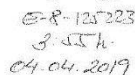 E-8-125223
3.55h.
04.04.2019